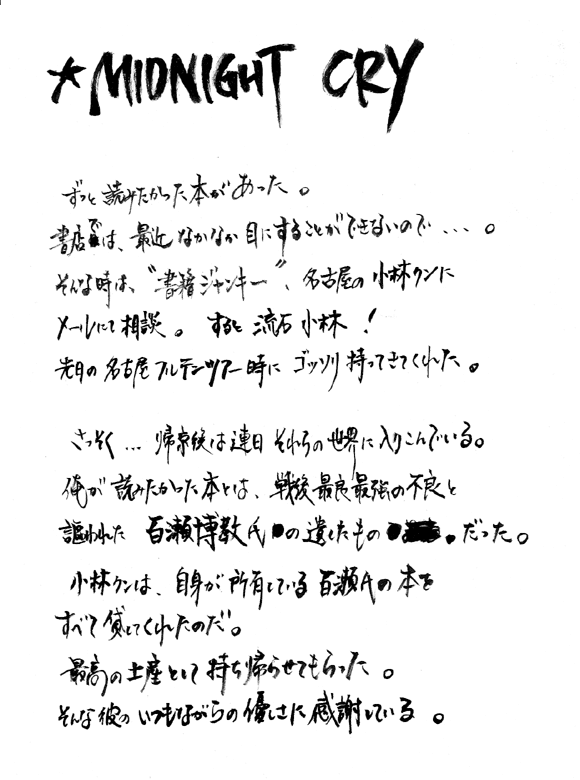 ★MIDNIGHT CRY
ずっと読みたかった本があった。
書店では、最近なかなか目にすることができないので...。
そんな時は、“書籍ジャンキー”、名古屋の小林クンに
メールにて相談。すると流石小林！
先日の名古屋フルテンツアー時にゴッソリ持ってきてくれた。
さっそく...帰京後は連日それらの世界に入りこんでいる。
俺が読みたかった本とは、戦後最良最強の不良と
謳われた百瀬博教氏の遺したもの だった。
小林クンは、自身が所有している百瀬氏の本を
すべて貸してくれたのだ。
最高の土産として持ち帰らせてもらった。
そんな彼のいつもながらの優しさに感謝している。